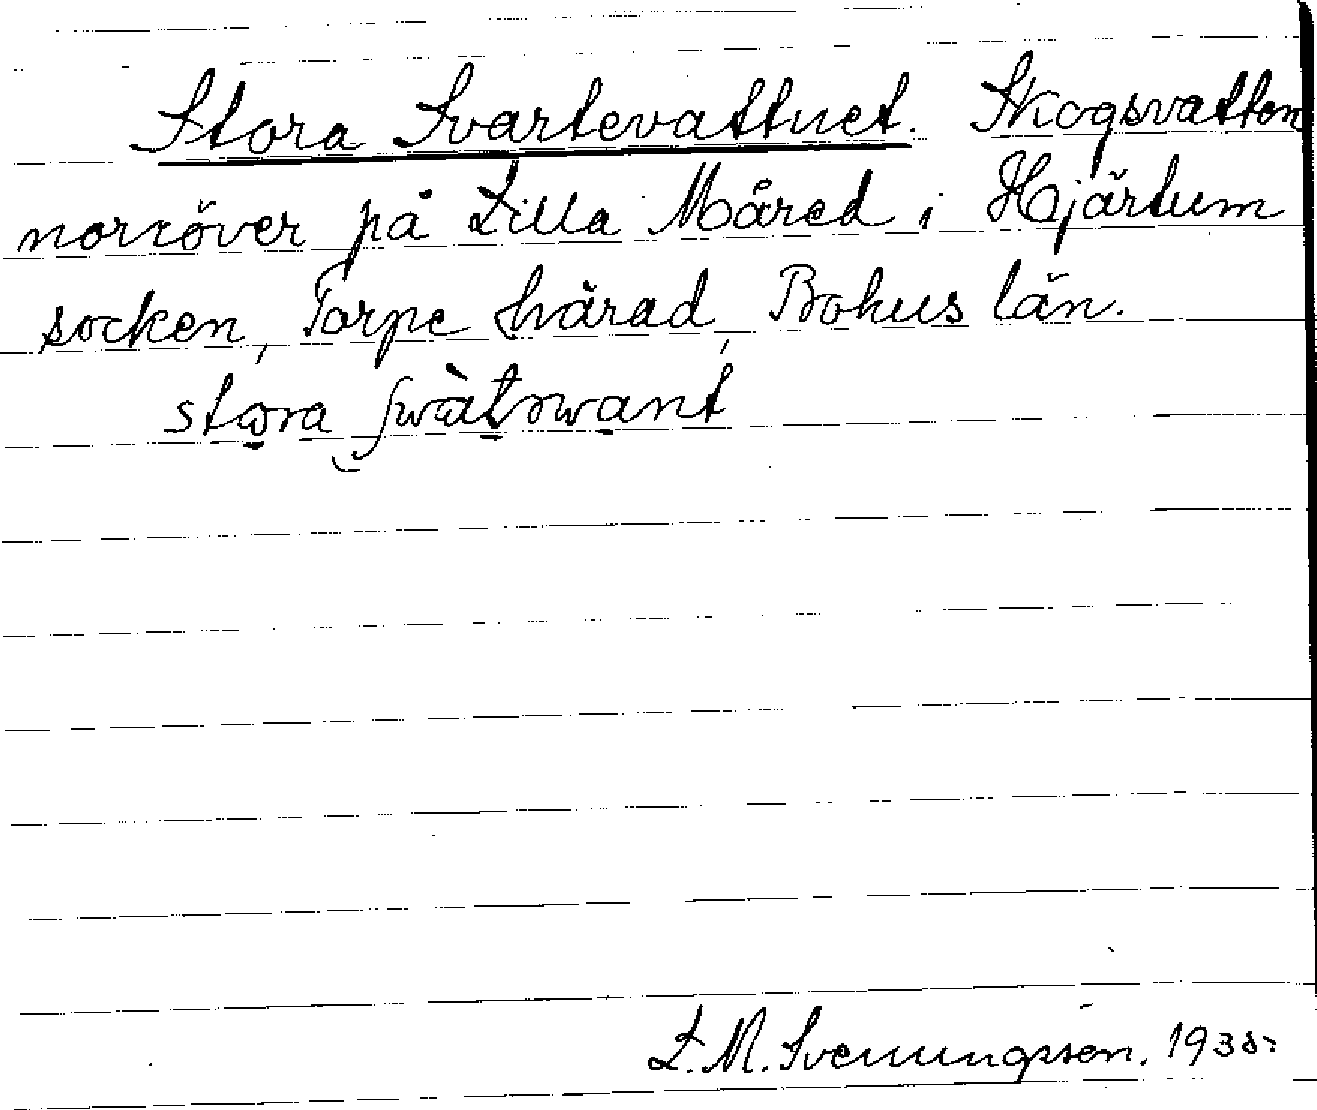 Stora Svartevattnet. Skogsvatten
norröver på Lilla Måred i Hjärtum
socken, Torpe härad, Bohus län.
stora
L. M. Svenungsson. 1935.